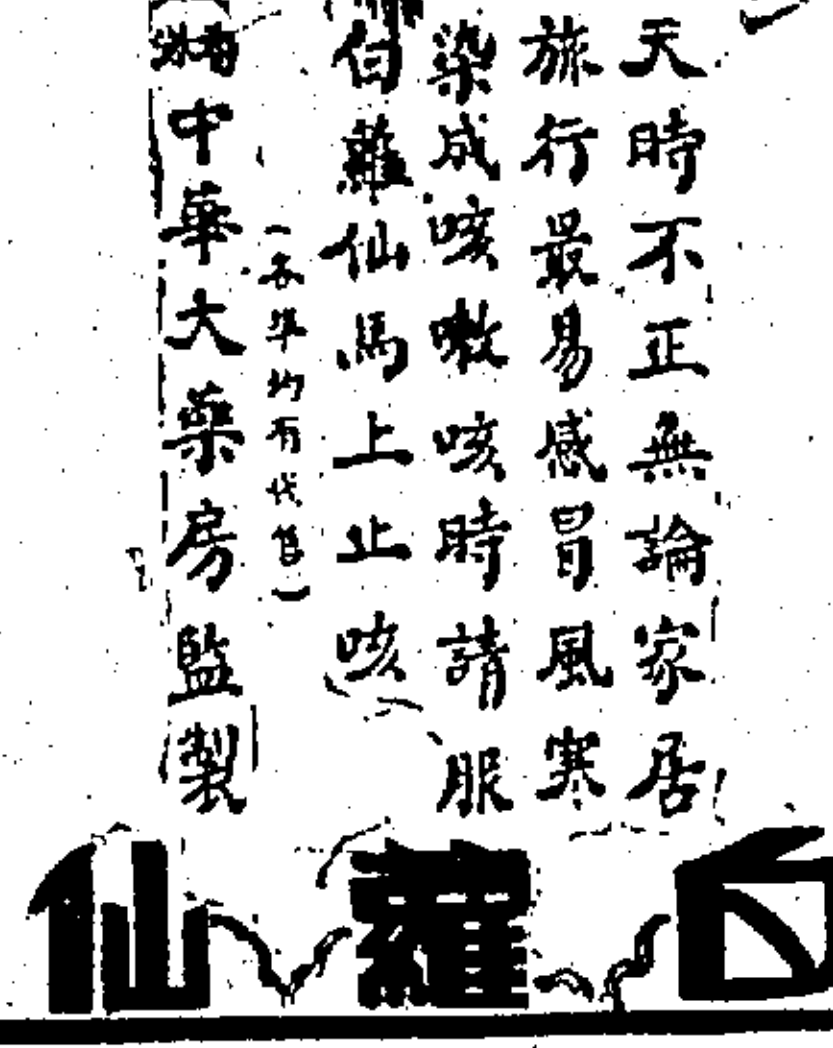 天時不正無論家居
旅行最易感冒風寒
染成咳嗽咳時請服
白蘿仙馬上止咳
(各埠均有代售)
中華大藥房監製
白蘿仙